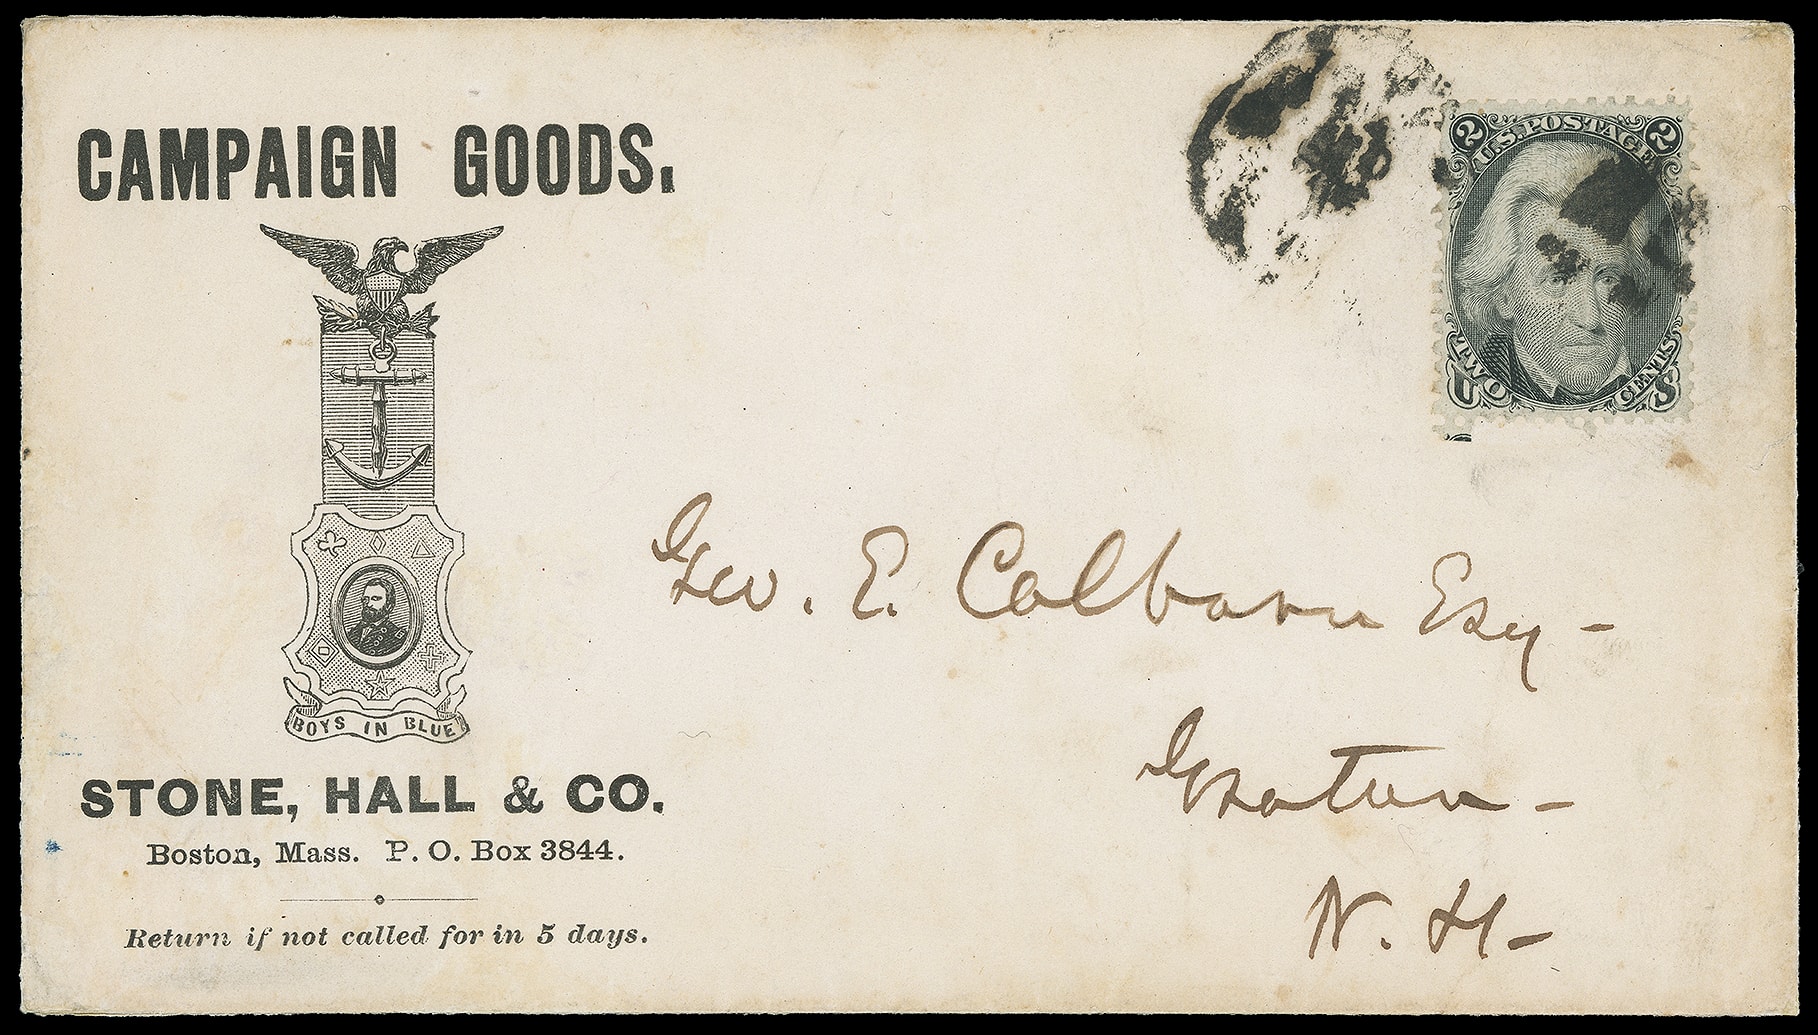 CAMPAIGN GOODS.
BOYS IN BLUE
STONE, HALL & CO.
Boston, Mass. P. O. Box 3844.
Return if not called for in 5 days.
2 U.S. POSTAGE 2
TWO CENTS
U S
Geo. E. Colbourn Esq -
Groton -
N. H -